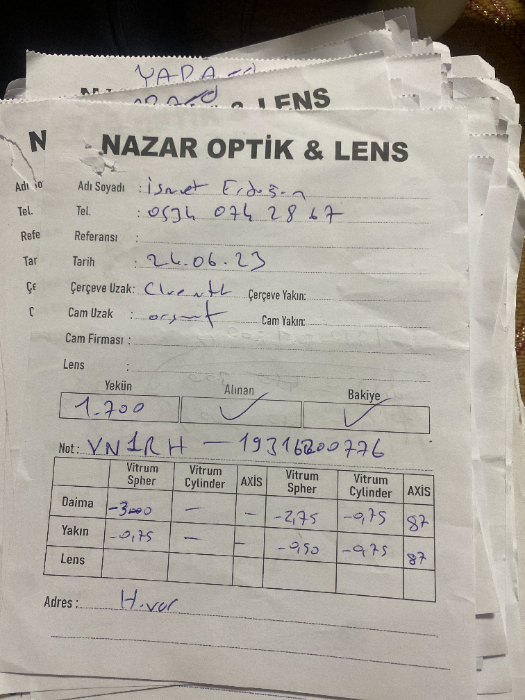 YAPA
& LENS
NAZAR OPTİK & LENS
Adı Soyadı : İsmet Erdoğan
Tel. : 0534 074 28 67
Referansı :
Tarih : 24.06.23
Çerçeve Uzak: Çerçeve Yakın:
Cam Uzak : Cam Yakın:
Cam Firması :
Lens :
Yekün Alınan Bakiye
1.700 ✓ ✓
Not: VN1RH — 19316200776
Vitrum Spher Vitrum Cylinder AXİS Vitrum Spher Vitrum Cylinder AXİS
Daima -3.00 — — -2,75 -0,75 87
Yakın -0,75 — — -0,50 -0,75 87
Lens
Adres :